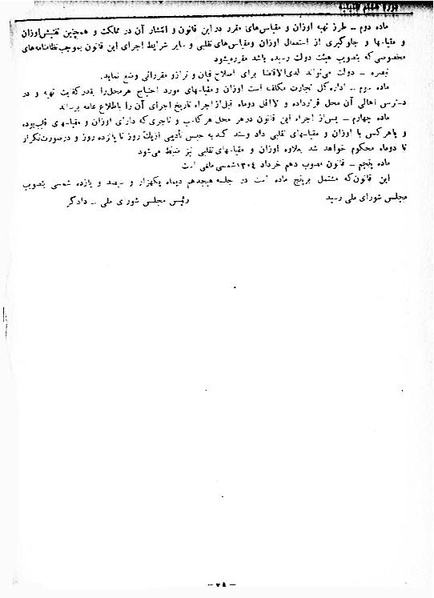 ماده دوم – طرز تهیه اوزان و مقیاس‌های مقرر در این قانون و انتشار آن در مملکت و همچنین تفتیش اوزان
و مقیاسها و جلوگیری از استعمال اوزان ومقیاس‌های تقلبی و سایر شرایط اجرای این قانون بموجب نظامنامه‌های
مخصوصی که بتصویب هیئت دولت رسیده باشد مقرر میشود
تبصره – دولت می‌تواند لدی‌الاقتضا برای اصلاح قپان و ترازو مقرراتی وضع نماید.
ماده سوم – اداره کل تجارت مکلف است اوزان و مقیاسهای مورد احتیاج هر محل را بقدر کفایت تهیه و در
دسترس اهالی آن محل قرار داده و لااقل دوماه قبل از اجراء تاریخ اجرای آن را باطلاع عامه برساند
ماده چهارم – پس از اجراء این قانون در هر محل هر کاسب و تاجری که دارای اوزان و مقیاسهای قلب بوده
و یا هر کس با اوزان و مقیاسهای تقلبی داد وستد کند به حبس تأدیبی از یک روز تا پانزده روز و در صورت تکرار
تا دوماه محکوم خواهد شد بعلاوه اوزان و مقیاسهای تقلبی نیز ضبط می‌شود
ماده پنجم – قانون مصوب دهم خرداد ۱۳۰۴ شمسی ملغی است
این قانون که مشتمل بر پنج ماده است در جلسه هیجدهم دیماه یکهزار و سیصد و یازده شمسی بتصویب
مجلس شورای ملی رسید رئیس مجلس شورای ملی – دادگر
– ۲۸ –